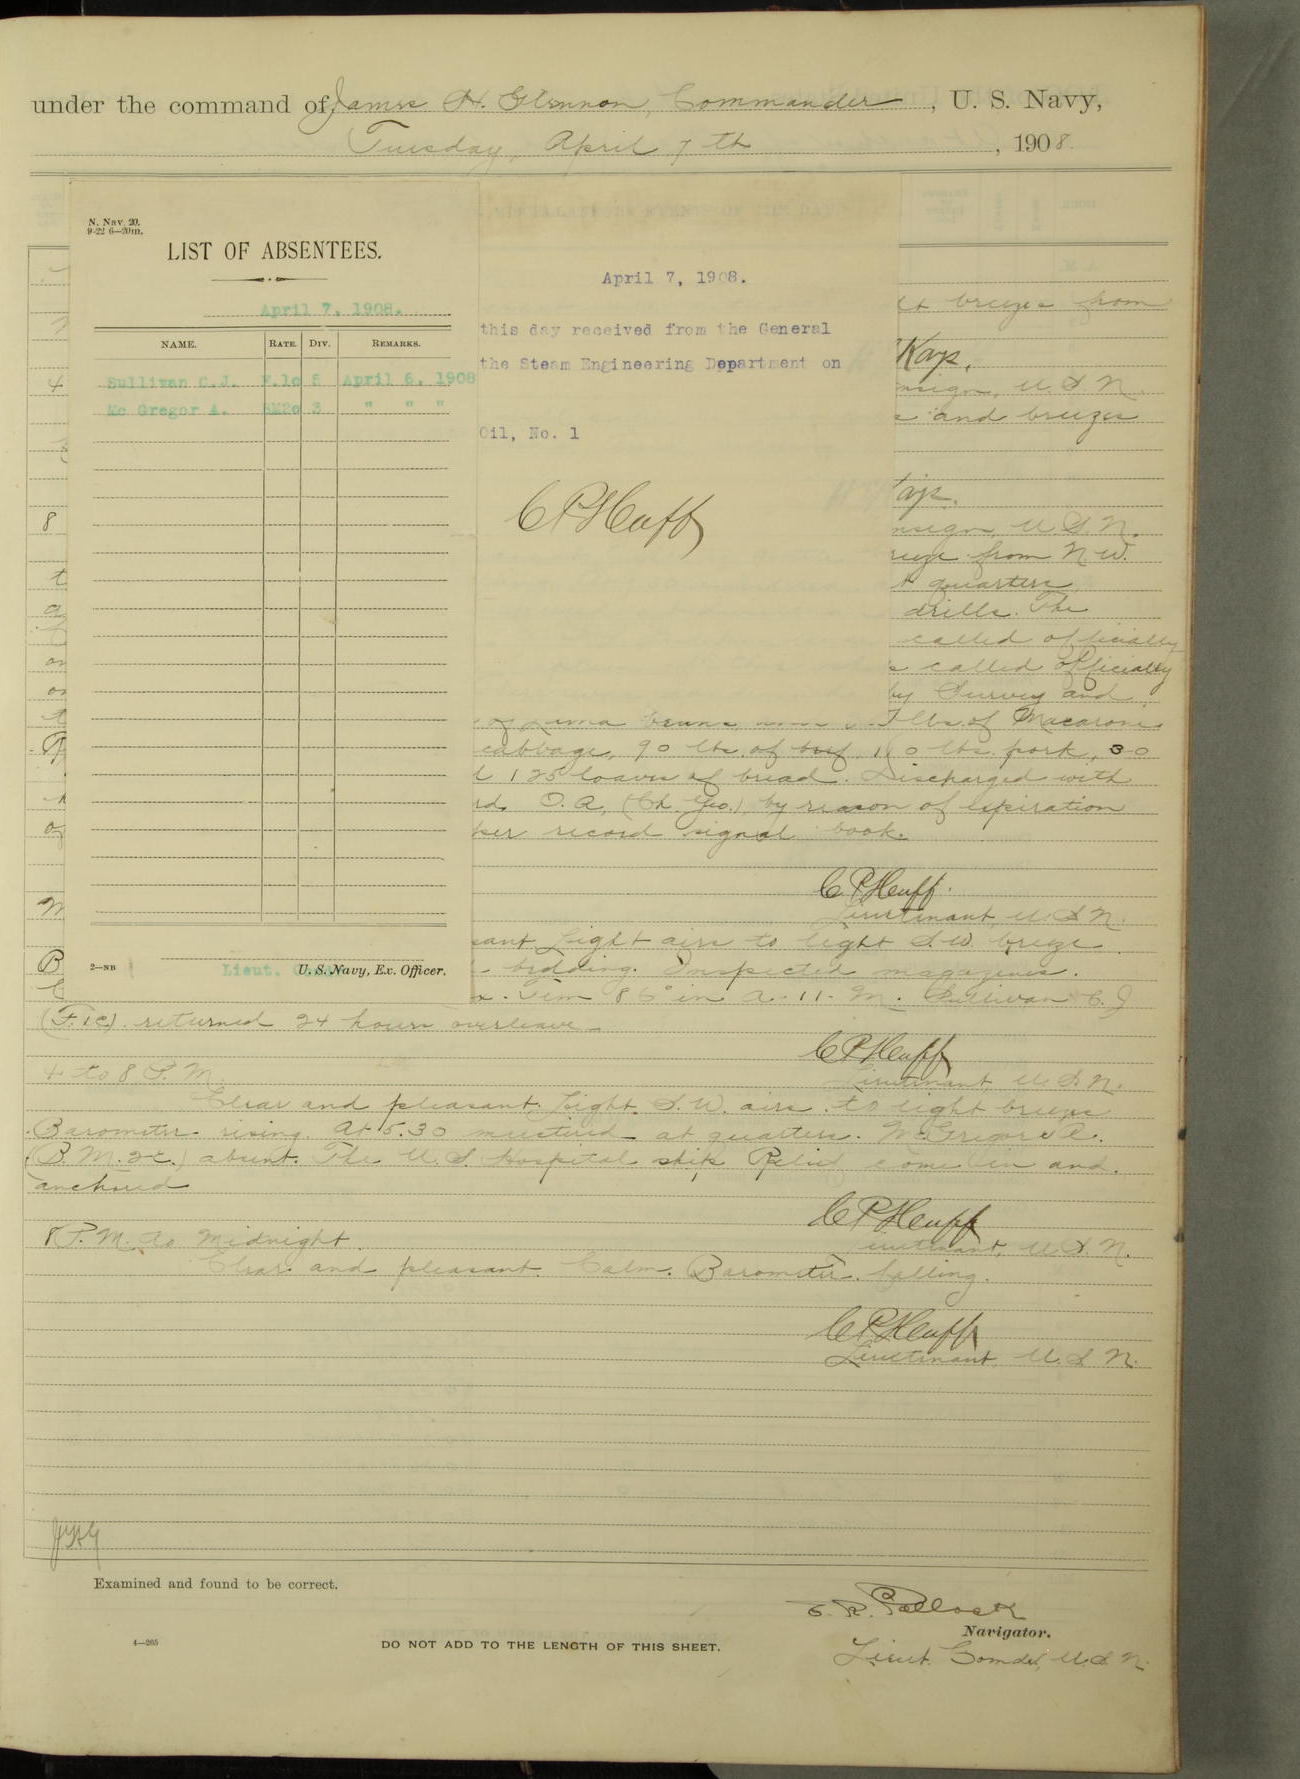 under the command of James H. Glennon, Commander, U. S. Navy,
Tuesday, April 7th, 1908.
N. Nav. 20.
9-22 6—20m.
LIST OF ABSENTEES.
April 7, 1908.
NAME. RATE. DIV. REMARKS.
Sullivan C.J. F.1c 5 April 6, 1908
Mc Gregor A. BM2c 3 " " "
2—NB
Lieut. U. S. Navy, Ex. Officer.
April 7, 1908.
this day received from the General
the Steam Engineering Department on
Oil, No. 1
C P Huff
breezes from
Kays.
nsign, U. S. N.
and breezes
4
ays.
8
nsign, U. S. N.
reeze from N.W.
quarters
drills. The
called officially
called officially
by Survey and
of Lima beans lbs. of Macaroni
cabbage, 90 lbs. of beef, 110 lbs. pork, 30
125 loaves of bread. Discharged with
O. A. (Ch. Yeo.) by reason of expiration
per record signal book.
C P Huff.
Lieutenant, U. S. N.
sant Light airs to light S.W. breeze
bedding. Inspected magazines.
Tem 86° in A-11-M. Sullivan C. J
(F. 1c). returned 24 hours overleave
C P Huff
Lieutenant, U. S. N.
4 to 8 P. M.
Clear and pleasant. Light S.W. airs to light breeze
Barometer rising. At 5.30 mustered at quarters. McGregor A.
(B. M. 2c.) absent. The U. S. Hospital ship Relief come in and
anchored
C P Huff
Lieutenant, U. S. N.
8 P. M. to Midnight
Clear and pleasant. Calm. Barometer falling.
C P Huff
Lieutenant, U. S. N.
Examined and found to be correct.
E. R. Pollock
Navigator.
4—265
DO NOT ADD TO THE LENGTH OF THIS SHEET.
Lieut. Comdr., U. S. N.